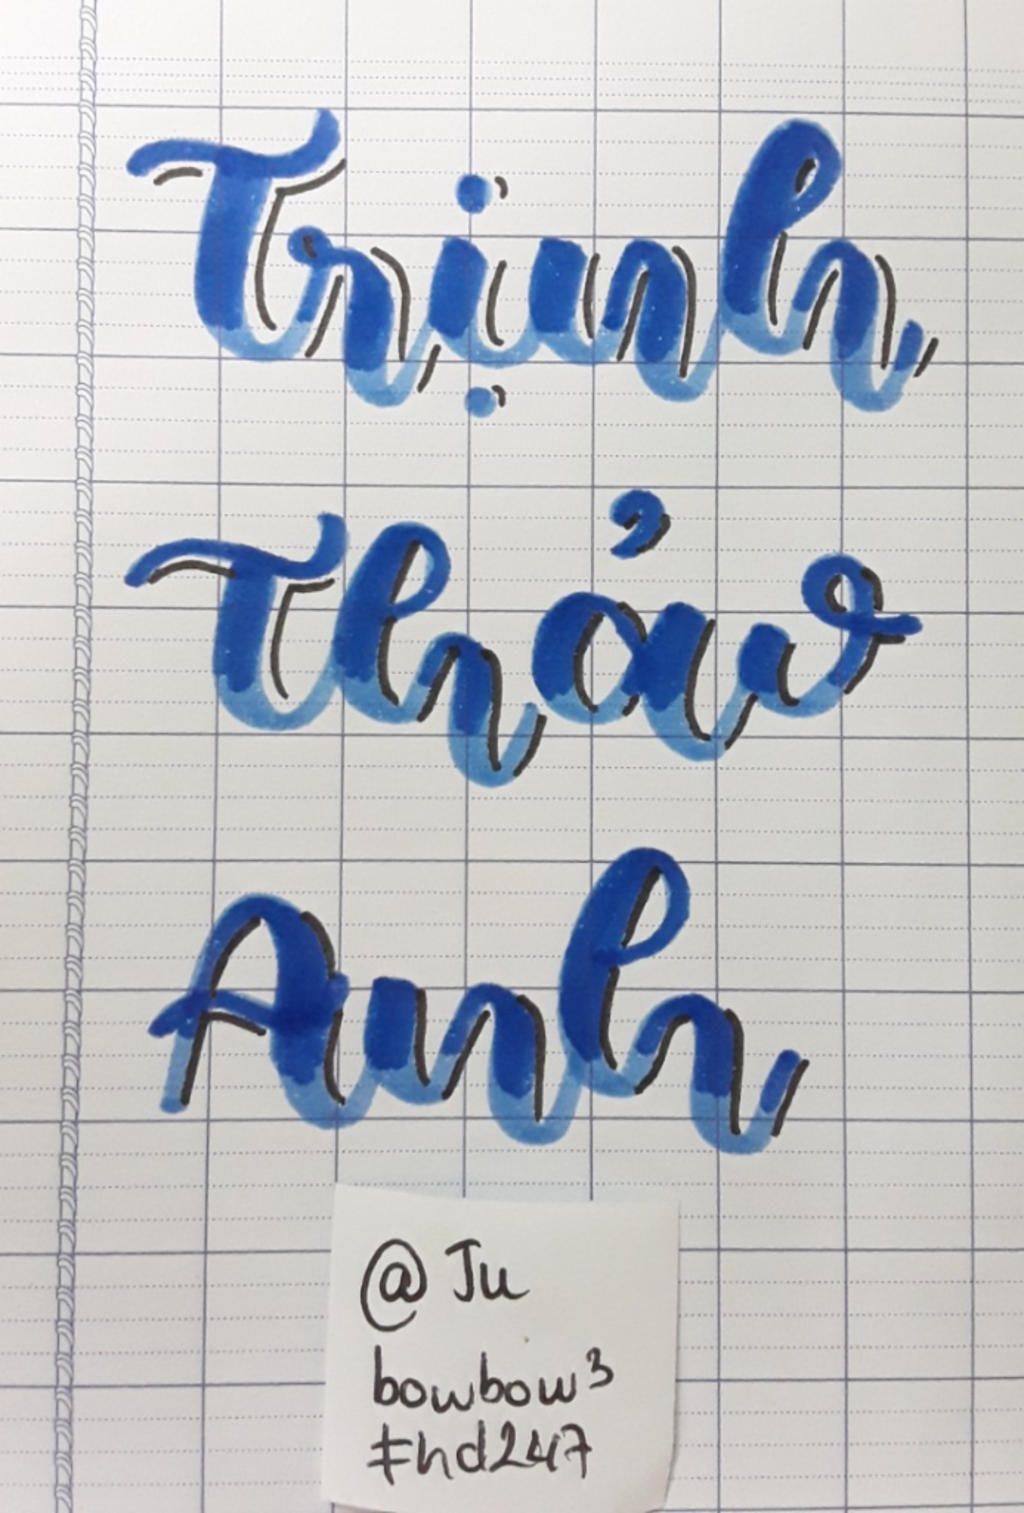 Trịnh
Thảo
Anh
@ Ju
bowbow3
#hd247